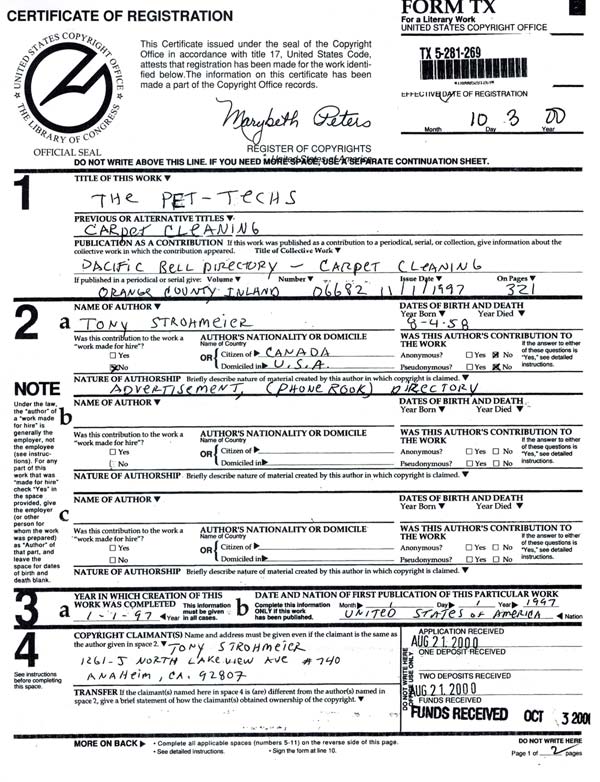 CERTIFICATE OF REGISTRATION
FORM TX
For a Literary Work
UNITED STATES COPYRIGHT OFFICE
UNITED STATES COPYRIGHT OFFICE
THE LIBRARY OF CONGRESS
OFFICIAL SEAL
This Certificate issued under the seal of the Copyright
Office in accordance with title 17, United States Code,
attests that registration has been made for the work identi-
fied below. The information on this certificate has been
made a part of the Copyright Office records.
TX 5-281-269
EFFECTIVE DATE OF REGISTRATION
10 3 00
Month Day Year
Marybeth Peters
REGISTER OF COPYRIGHTS
United States of America
DO NOT WRITE ABOVE THIS LINE. IF YOU NEED MORE SPACE, USE A SEPARATE CONTINUATION SHEET.
1
TITLE OF THIS WORK ▼
THE PET-TECHS
PREVIOUS OR ALTERNATIVE TITLES ▼
CARPET CLEANING
PUBLICATION AS A CONTRIBUTION If this work was published as a contribution to a periodical, serial, or collection, give information about the
collective work in which the contribution appeared. Title of Collective Work ▼
PACIFIC BELL DIRECTORY - CARPET CLEANING
If published in a periodical or serial give: Volume ▼ Number ▼ Issue Date ▼ On Pages ▼
ORANGE COUNTY INLAND 06682 11/1/1997 321
2
a
NAME OF AUTHOR ▼
TONY STROHMEIER
DATES OF BIRTH AND DEATH
Year Born ▼ Year Died ▼
8-4-58
Was this contribution to the work a
"work made for hire"?
☐ Yes
☒ No
AUTHOR'S NATIONALITY OR DOMICILE
Name of Country
OR { Citizen of ▶ CANADA
Domiciled in ▶ U.S.A.
WAS THIS AUTHOR'S CONTRIBUTION TO
THE WORK
Anonymous? ☐ Yes ☒ No
Pseudonymous? ☐ Yes ☒ No
If the answer to either
of these questions is
"Yes," see detailed
instructions.
NATURE OF AUTHORSHIP Briefly describe nature of material created by this author in which copyright is claimed. ▼
ADVERTISEMENT, (PHONE BOOK) DIRECTORY
NOTE
Under the law,
the "author" of
a "work made
for hire" is
generally the
employer, not
the employee
(see instruc-
tions). For any
part of this
work that was
"made for hire"
check "Yes" in
the space
provided, give
the employer
(or other
person for
whom the work
was prepared)
as "Author" of
that part, and
leave the
space for dates
of birth and
death blank.
b
NAME OF AUTHOR ▼
DATES OF BIRTH AND DEATH
Year Born ▼ Year Died ▼
Was this contribution to the work a
"work made for hire"?
☐ Yes
☐ No
AUTHOR'S NATIONALITY OR DOMICILE
Name of Country
OR { Citizen of ▶
Domiciled in ▶
WAS THIS AUTHOR'S CONTRIBUTION TO
THE WORK
Anonymous? ☐ Yes ☐ No
Pseudonymous? ☐ Yes ☐ No
If the answer to either
of these questions is
"Yes," see detailed
instructions.
NATURE OF AUTHORSHIP Briefly describe nature of material created by this author in which copyright is claimed. ▼
c
NAME OF AUTHOR ▼
DATES OF BIRTH AND DEATH
Year Born ▼ Year Died ▼
Was this contribution to the work a
"work made for hire"?
☐ Yes
☐ No
AUTHOR'S NATIONALITY OR DOMICILE
Name of Country
OR { Citizen of ▶
Domiciled in ▶
WAS THIS AUTHOR'S CONTRIBUTION TO
THE WORK
Anonymous? ☐ Yes ☐ No
Pseudonymous? ☐ Yes ☐ No
If the answer to either
of these questions is
"Yes," see detailed
instructions.
NATURE OF AUTHORSHIP Briefly describe nature of material created by this author in which copyright is claimed. ▼
3
a
YEAR IN WHICH CREATION OF THIS
WORK WAS COMPLETED This information
must be given
in all cases.
1-1-97 ◀ Year
b
DATE AND NATION OF FIRST PUBLICATION OF THIS PARTICULAR WORK
Complete this information
ONLY if this work
has been published.
Month ▶ 11 Day ▶ 1 Year ▶ 1997
UNITED STATES OF AMERICA ◀ Nation
4
See instructions
before completing
this space.
COPYRIGHT CLAIMANT(S) Name and address must be given even if the claimant is the same as
the author given in space 2. ▼ TONY STROHMEIER
1261-J NORTH LAKEVIEW AVE # 740
ANAHEIM, CA. 92807
TRANSFER If the claimant(s) named here in space 4 is (are) different from the author(s) named in
space 2, give a brief statement of how the claimant(s) obtained ownership of the copyright. ▼
DO NOT WRITE HERE
OFFICE USE ONLY
APPLICATION RECEIVED
AUG 21.2000
ONE DEPOSIT RECEIVED
TWO DEPOSITS RECEIVED
AUG 21.2000
FUNDS RECEIVED
FUNDS RECEIVED OCT 3 2000
MORE ON BACK ▶
• Complete all applicable spaces (numbers 5-11) on the reverse side of this page.
• See detailed instructions. • Sign the form at line 10.
DO NOT WRITE HERE
Page 1 of 2 pages